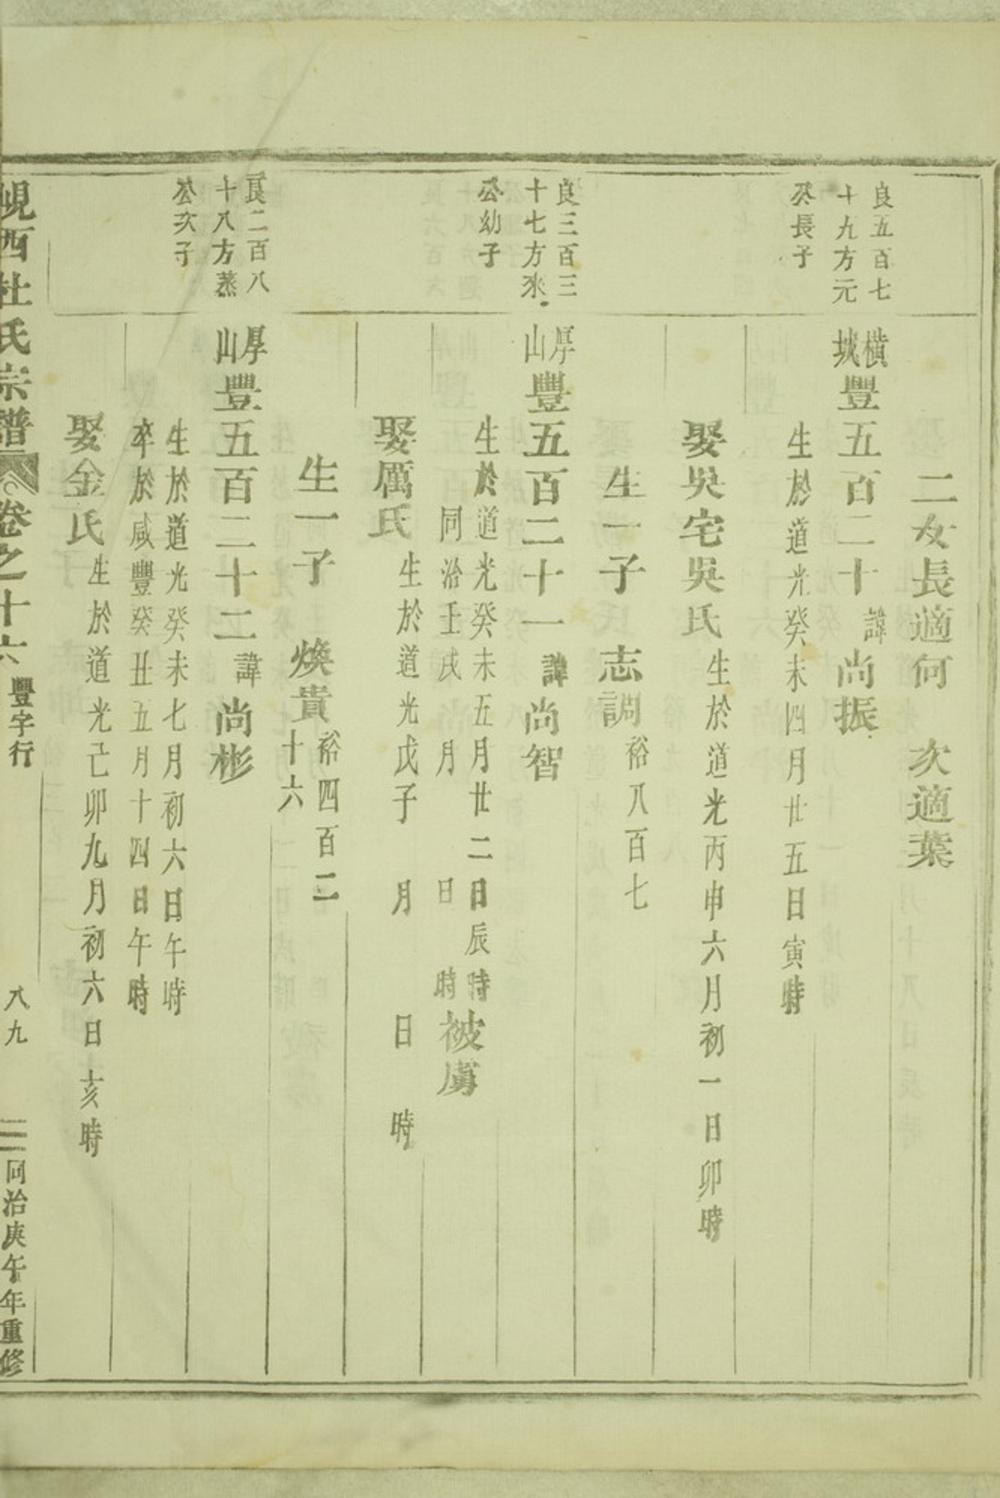 二女長適何　次適葉
良五百七
十九方元
公長子
橫城豐五百二十諱尚振
生於道光癸未四月廿五日寅時
娶吳宅吳氏生於道光丙申六月初一日卯時
生一子　志調裕八百七
良三百三
十七方來
公幼子
厚山豐五百二十一諱尚智
生於道光癸未五月廿二日辰時
同治壬戌　月　日　時被虜
娶厲氏生於道光戊子　月　日　時
生一子　煥貴裕四百二十六
良二百八
十八方蒸
公次子
厚山豐五百二十二諱尚彬
生於道光癸未七月初六日午時
卒於咸豐癸丑五月十四日午時
娶金氏生於道光己卯九月初六日亥時
峴西杜氏宗譜　卷之十六　豐字行　八九　同治庚午年重修